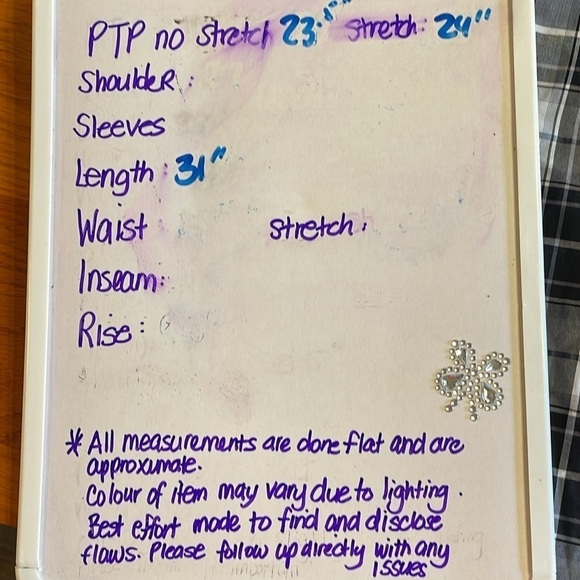 PTP no stretch 23.5" stretch: 24"
Shoulder:
Sleeves
Length: 31"
Waist: stretch:
Inseam:
Rise:
* All measurements are done flat and are
approxumate.
Colour of item may vary due to lighting.
Best effort made to find and disclose
flaws. Please follow up directly with any
issues